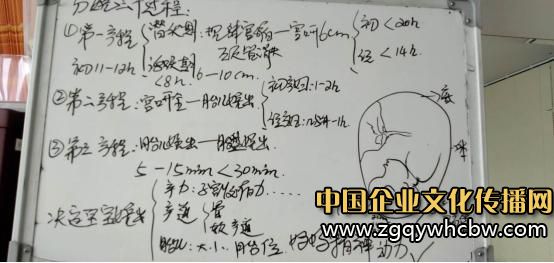 分娩三个过程:
①第一产程 潜伏期:规律宫缩—宫口6cm 初<20h
经<14h
初11-12h 活跃期 6-10cm
<8h
②第二产程:宫口全—胎儿娩出 初产妇:1-2h
经产妇:
③第三产程:胎儿娩出—胎盘娩出
5-15min<30min
产力:子宫收缩力......
决定 产道 骨
软产道
胎儿:大小、胎位
精神 动力
底
中国企业文化传播网
www.zgqywhcbw.com